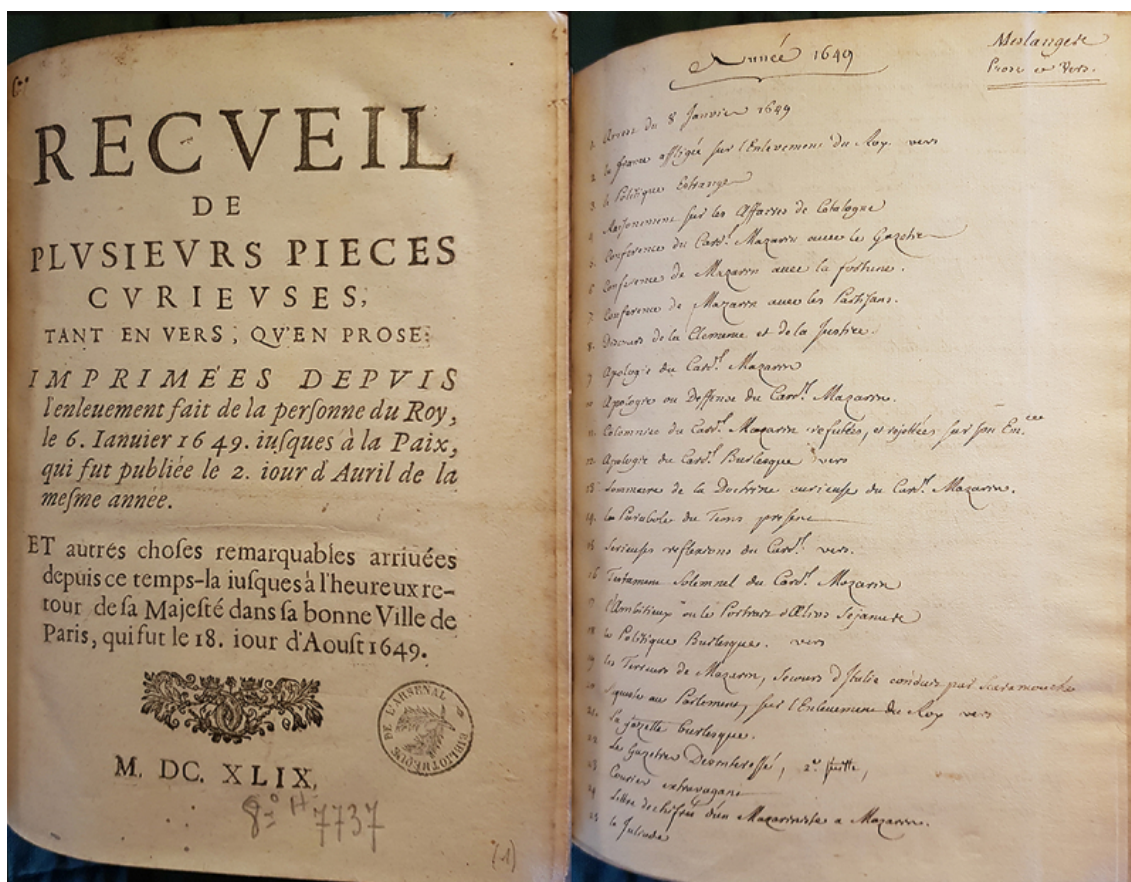 RECVEIL
DE
PLVSIEVRS PIECES
CVRIEVSES,
TANT EN VERS, QV'EN PROSE:
IMPRIMÉES DEPVIS
l'enleuement fait de la perſonne du Roy,
le 6. Ianuier 1649. iuſques à la Paix,
qui fut publiée le 2. iour d'Auril de la
meſme annee.
ET autrés choſes remarquables arriuées
depuis ce temps-la iuſques à l'heureux re-
tour de ſa Majeſté dans ſa bonne Ville de
Paris, qui fut le 18. iour d'Aouſt 1649.
BIBLIOTHEQUE DE L'ARSENAL
M. DC. XLIX,
8º H 7737
(1)
Année 1649
Meslange de
Prose et Vers.
1. Arrest du 8 Janvier 1649
2. la france affligée sur l'Enlevement du Roy vers
3. le Politique Estrange
4. Raisonement sur les Affaires de Catalogne
5. Conference du Card.l Mazarin avec le Gazetier
6. Conference de Mazarin avec la fortune.
7. Conference de Mazarin avec les Partisans.
8. Discours de la Clemence et de la Justice.
9 Apologie du Card.l Mazarin
10 Apologie ou Deffense du Card.l Mazarin.
11. Calomnies du Card.l Mazarin refutées, et rejettées sur son Em.ce
12 Apologie du Card.l Burlesque vers
13 Sommaire de la Doctrine curieuse du Card.l Mazarin.
14. la Parabole du Tems present
15 Serieuses reflexions du Card.l vers.
16 Testament Solemnel du Card.l Mazarin
17 l'Ambitieux ou le Portrait d'Ælius Sejanus
18 le Politique Burlesque. vers
19 les Terreurs de Mazarin, secours d'Italie conduit par Scaramouche
20 au Parlement, sur l'Enlevement du Roy vers
21. La gazette burlesque.
22 Le Gazetier Desinteressé, 2e
23 Courier extravagant
24 Lettre dechifrée d'un Mazariniste a Mazarin.
25 la Juliade